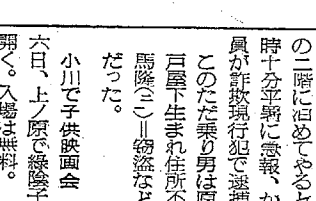 の二階に泊めてやると
時十分平署に急報、か
員が詐欺現行犯で逮捕
このただ乗り男は原
戸屋下生まれ住所不
馬隆(二一)＝窃盗など
だった。
小川で子供映画会
六日、上ノ原で緑陰子
開く。入場は無料。